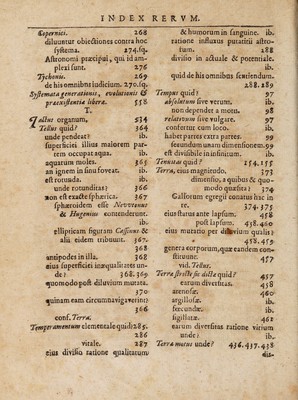 INDEX RERVM.
Copernici. 268
diluuntur obiectiones contra hoc
systema. 274.sq.
Astronomi præcipui, qui id am-
plexi sunt. 276
Tychonis. 269
de his omnibus iudicium. 270.sq.
Systemata generationis, evolutionis &
præexistentia libera. 558
T.
Tactus organum. 534
Tellus quid? 364
unde pendeat? ib.
superficiei illius maiorem par-
tem occupat aqua. ib.
aquarum moles. 365
an ignem in sinu foveat. ib.
est rotunda. ib.
unde rotunditas? 366
non est exacte sphærica. 367
sphæroidem esse Nevvtonus
& Hugenius contenderunt.
ib.
ellipticam figuram Cassinus &
alii eidem tribuunt. 367.
368
antipodes in illa. 368
eius superficiei inæqualitates un-
de? 368.369
quomodo post diluvium mutata.
370
quinam eam circumnavigaverint?
366
conf. Terra.
Temperamentum elementale quid? 285.
286
vitale. 287
eius divisio ratione qualitatum
& humorum in sanguine. ib.
ratione influxus putatitii astro-
rum. 288
divisio in actuale & potentiale.
ib.
quid de his omnibus sentiendum.
288.289
Tempus quid? 97
absolutum sive verum. ib.
non dependet a motu. 98
relativum sive vulgare. 97
confertur cum loco. ib.
habet partes extra partes. 99
secundum unam dimensionem. 99
est divisibile in infinitum. ib.
Tenuitas quid? 154.155
Terra, eius magnitudo. 373
dimensio, a quibus & quo-
modo quæsita? 374
Gallorum egregii conatus hac in
re. 374.375
eius status ante lapsum. 458
post lapsum. 458
eius mutatio per diluvium qualis?
458.459
genera corporum, quæ eandem con-
stituunt. 457
vid. Tellus.
Terra stricte sic dicta quid? 457
earum diversitas. 458
arenosæ. 460
argillosæ. ib.
fœcundæ. ib.
sigillatæ. 461
earum diversitas ratione virium
unde? ib.
Terræ motus unde? 436.437.438
dis-